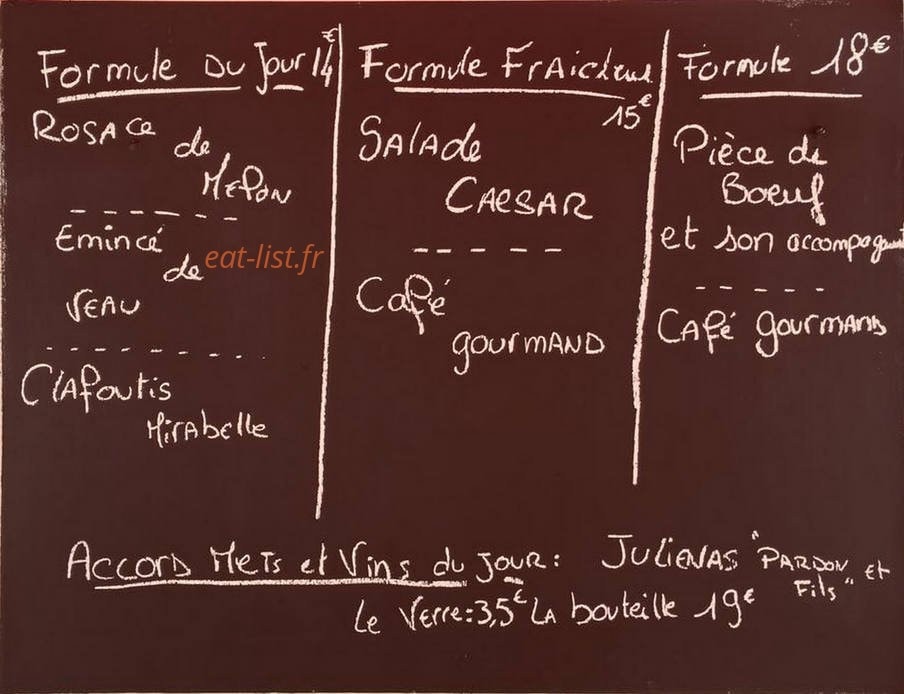 Formule du Jour 14€
Rosace
de
Melon
Emincé
de
Veau
Clafoutis
Mirabelle
Formule Fraicheur
15€
Salade
Caesar
Café
gourmand
Formule 18€
Pièce de
Boeuf
et son accompagnement
Café gourmand
eat-list.fr
Accord Mets et Vins du jour: Julienas "Pardon et
Fils"
Le Verre: 3,5€ La bouteille 19€